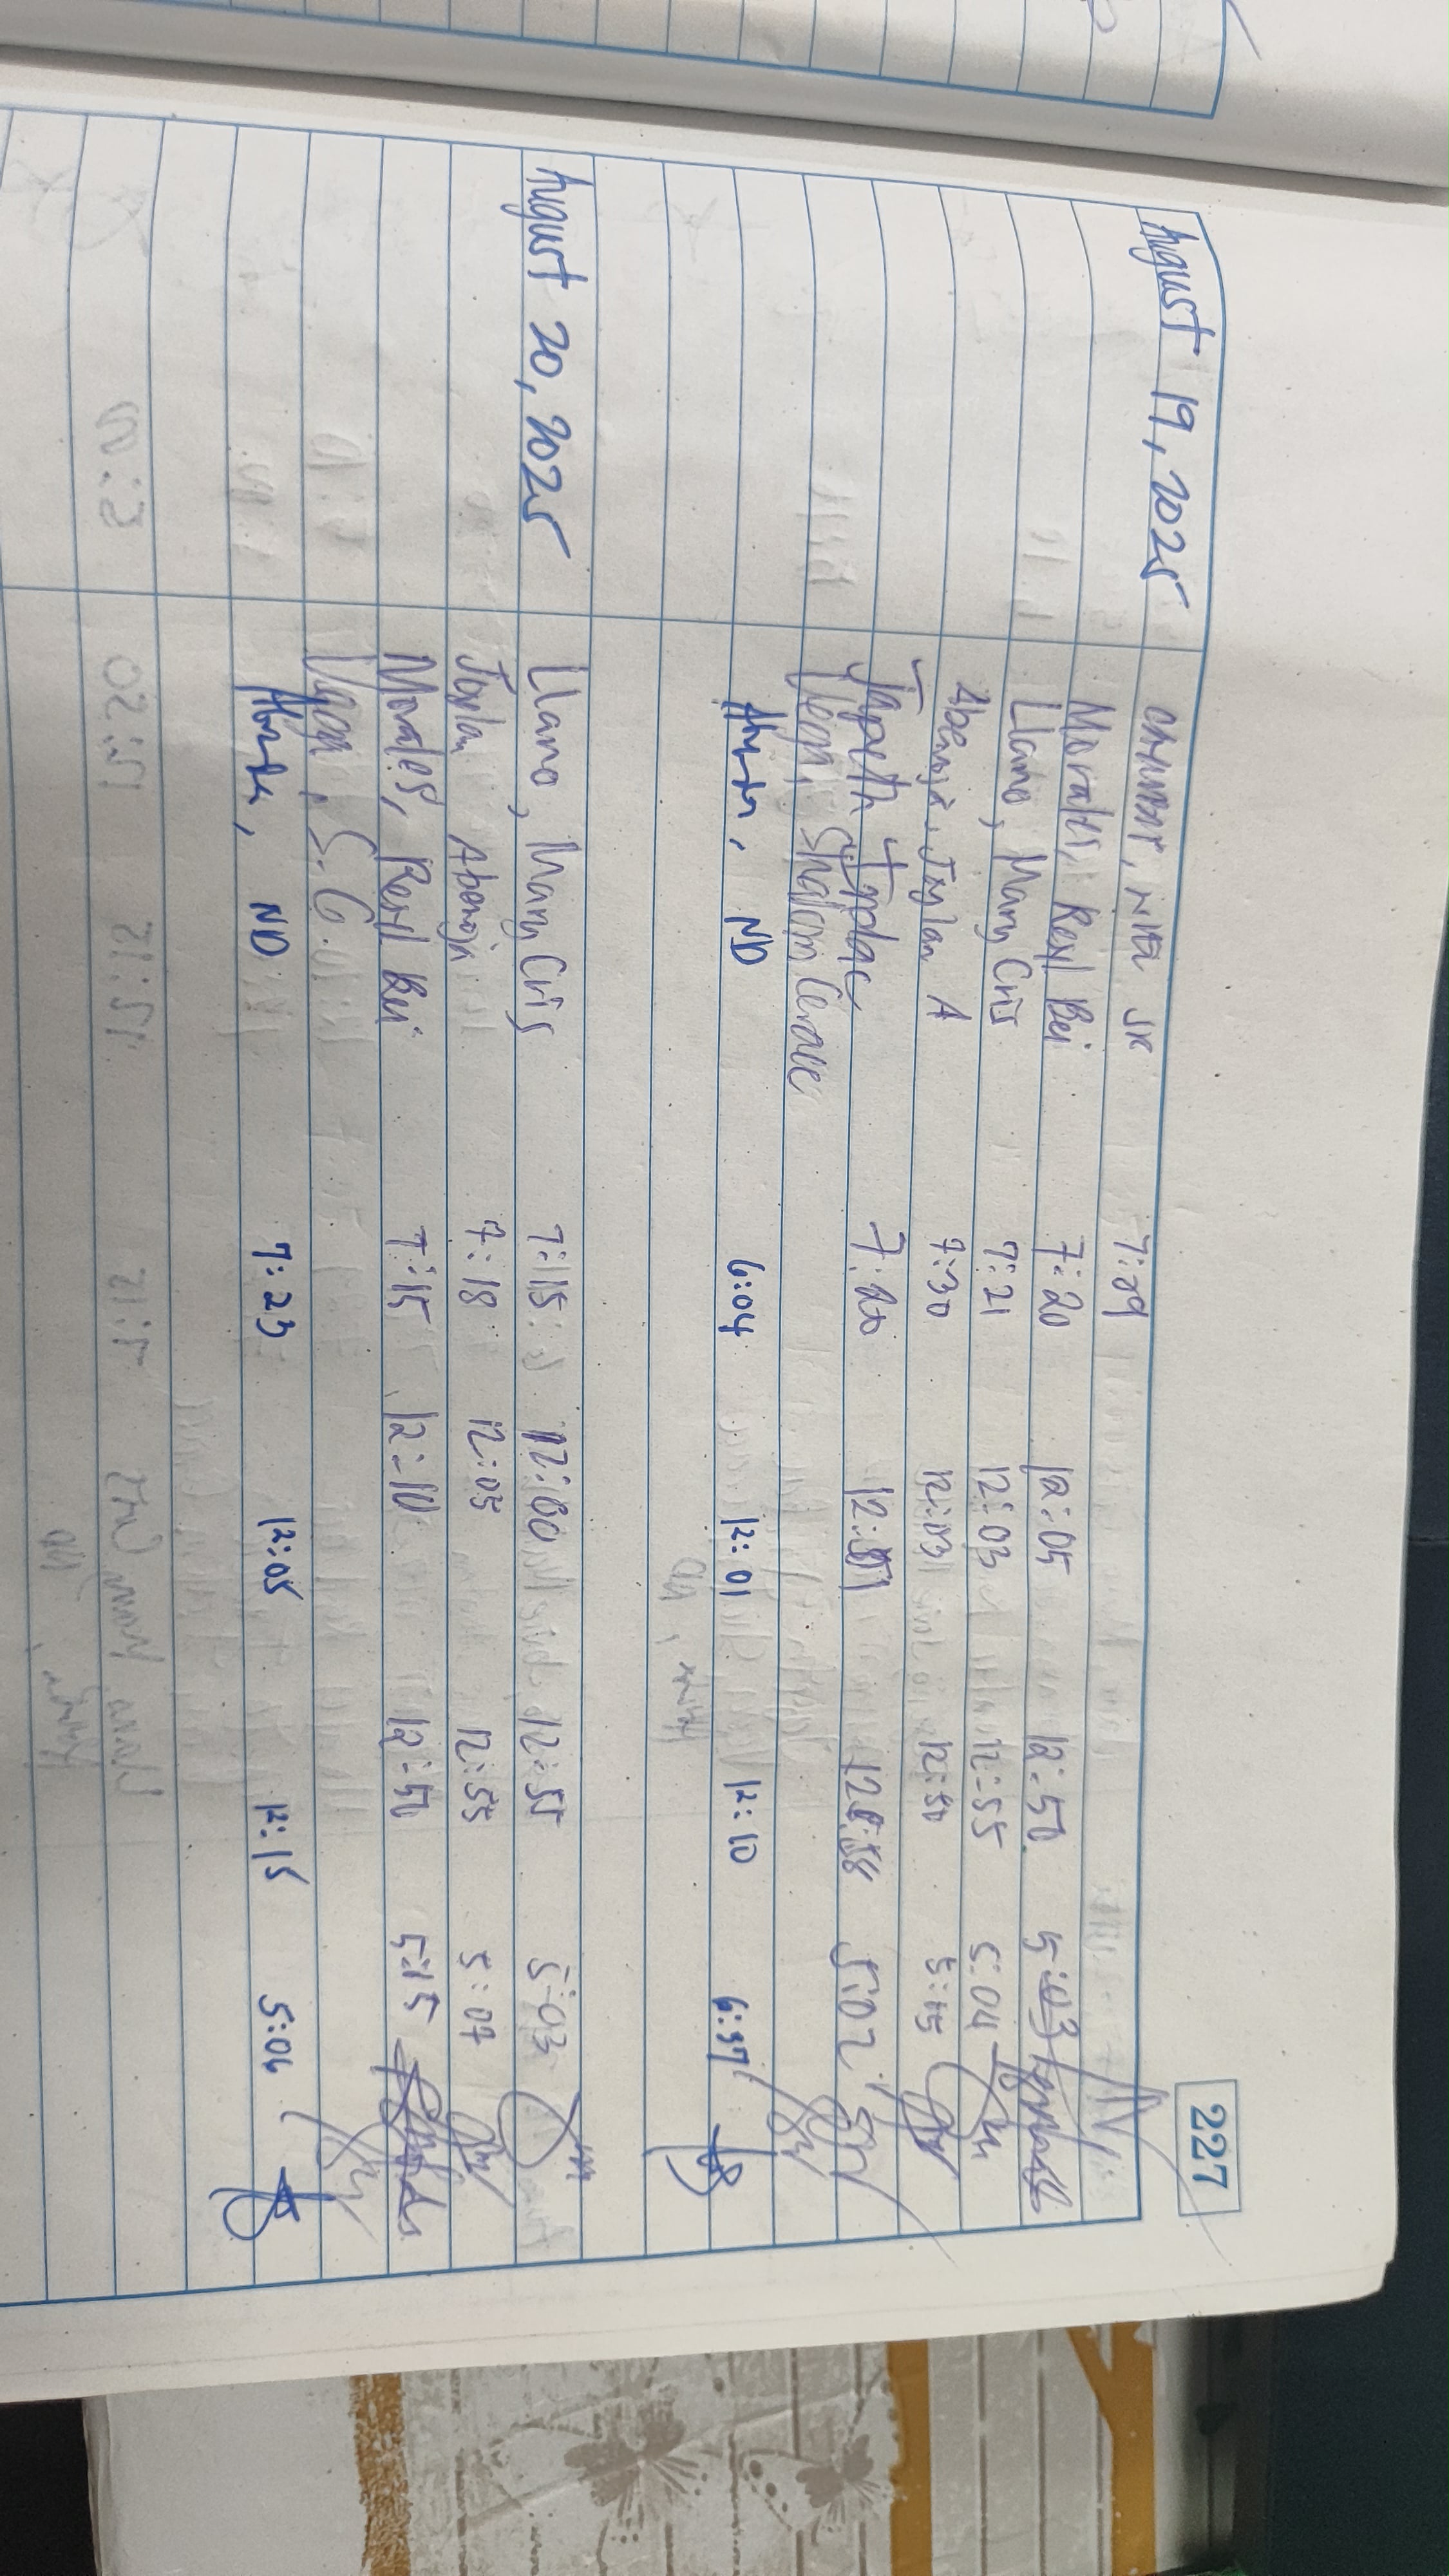 227
August 19, 2025 JR 7:09
Morales, Rexyl Bei 7:20 12:05 12:50 5:03
Llano, Mary Cris 7:21 12:03 12:55 5:04
Abenoja, Jaylan A 7:30 12:03 12:50 5:05
Japeth 7:20 12:01 12:58 5:02
Shalom Cerace
, ND 6:04 12:01 12:10 6:37
August 20, 2025 Llano, Mary Cris 7:15 12:00 12:55 5:03
Jaylan Abenoja 7:18 12:05 12:55 5:07
Morales, Rexyl Bei 7:15 12:10 12:50 5:15
S.C.
, ND 7:23 12:05 12:15 5:06